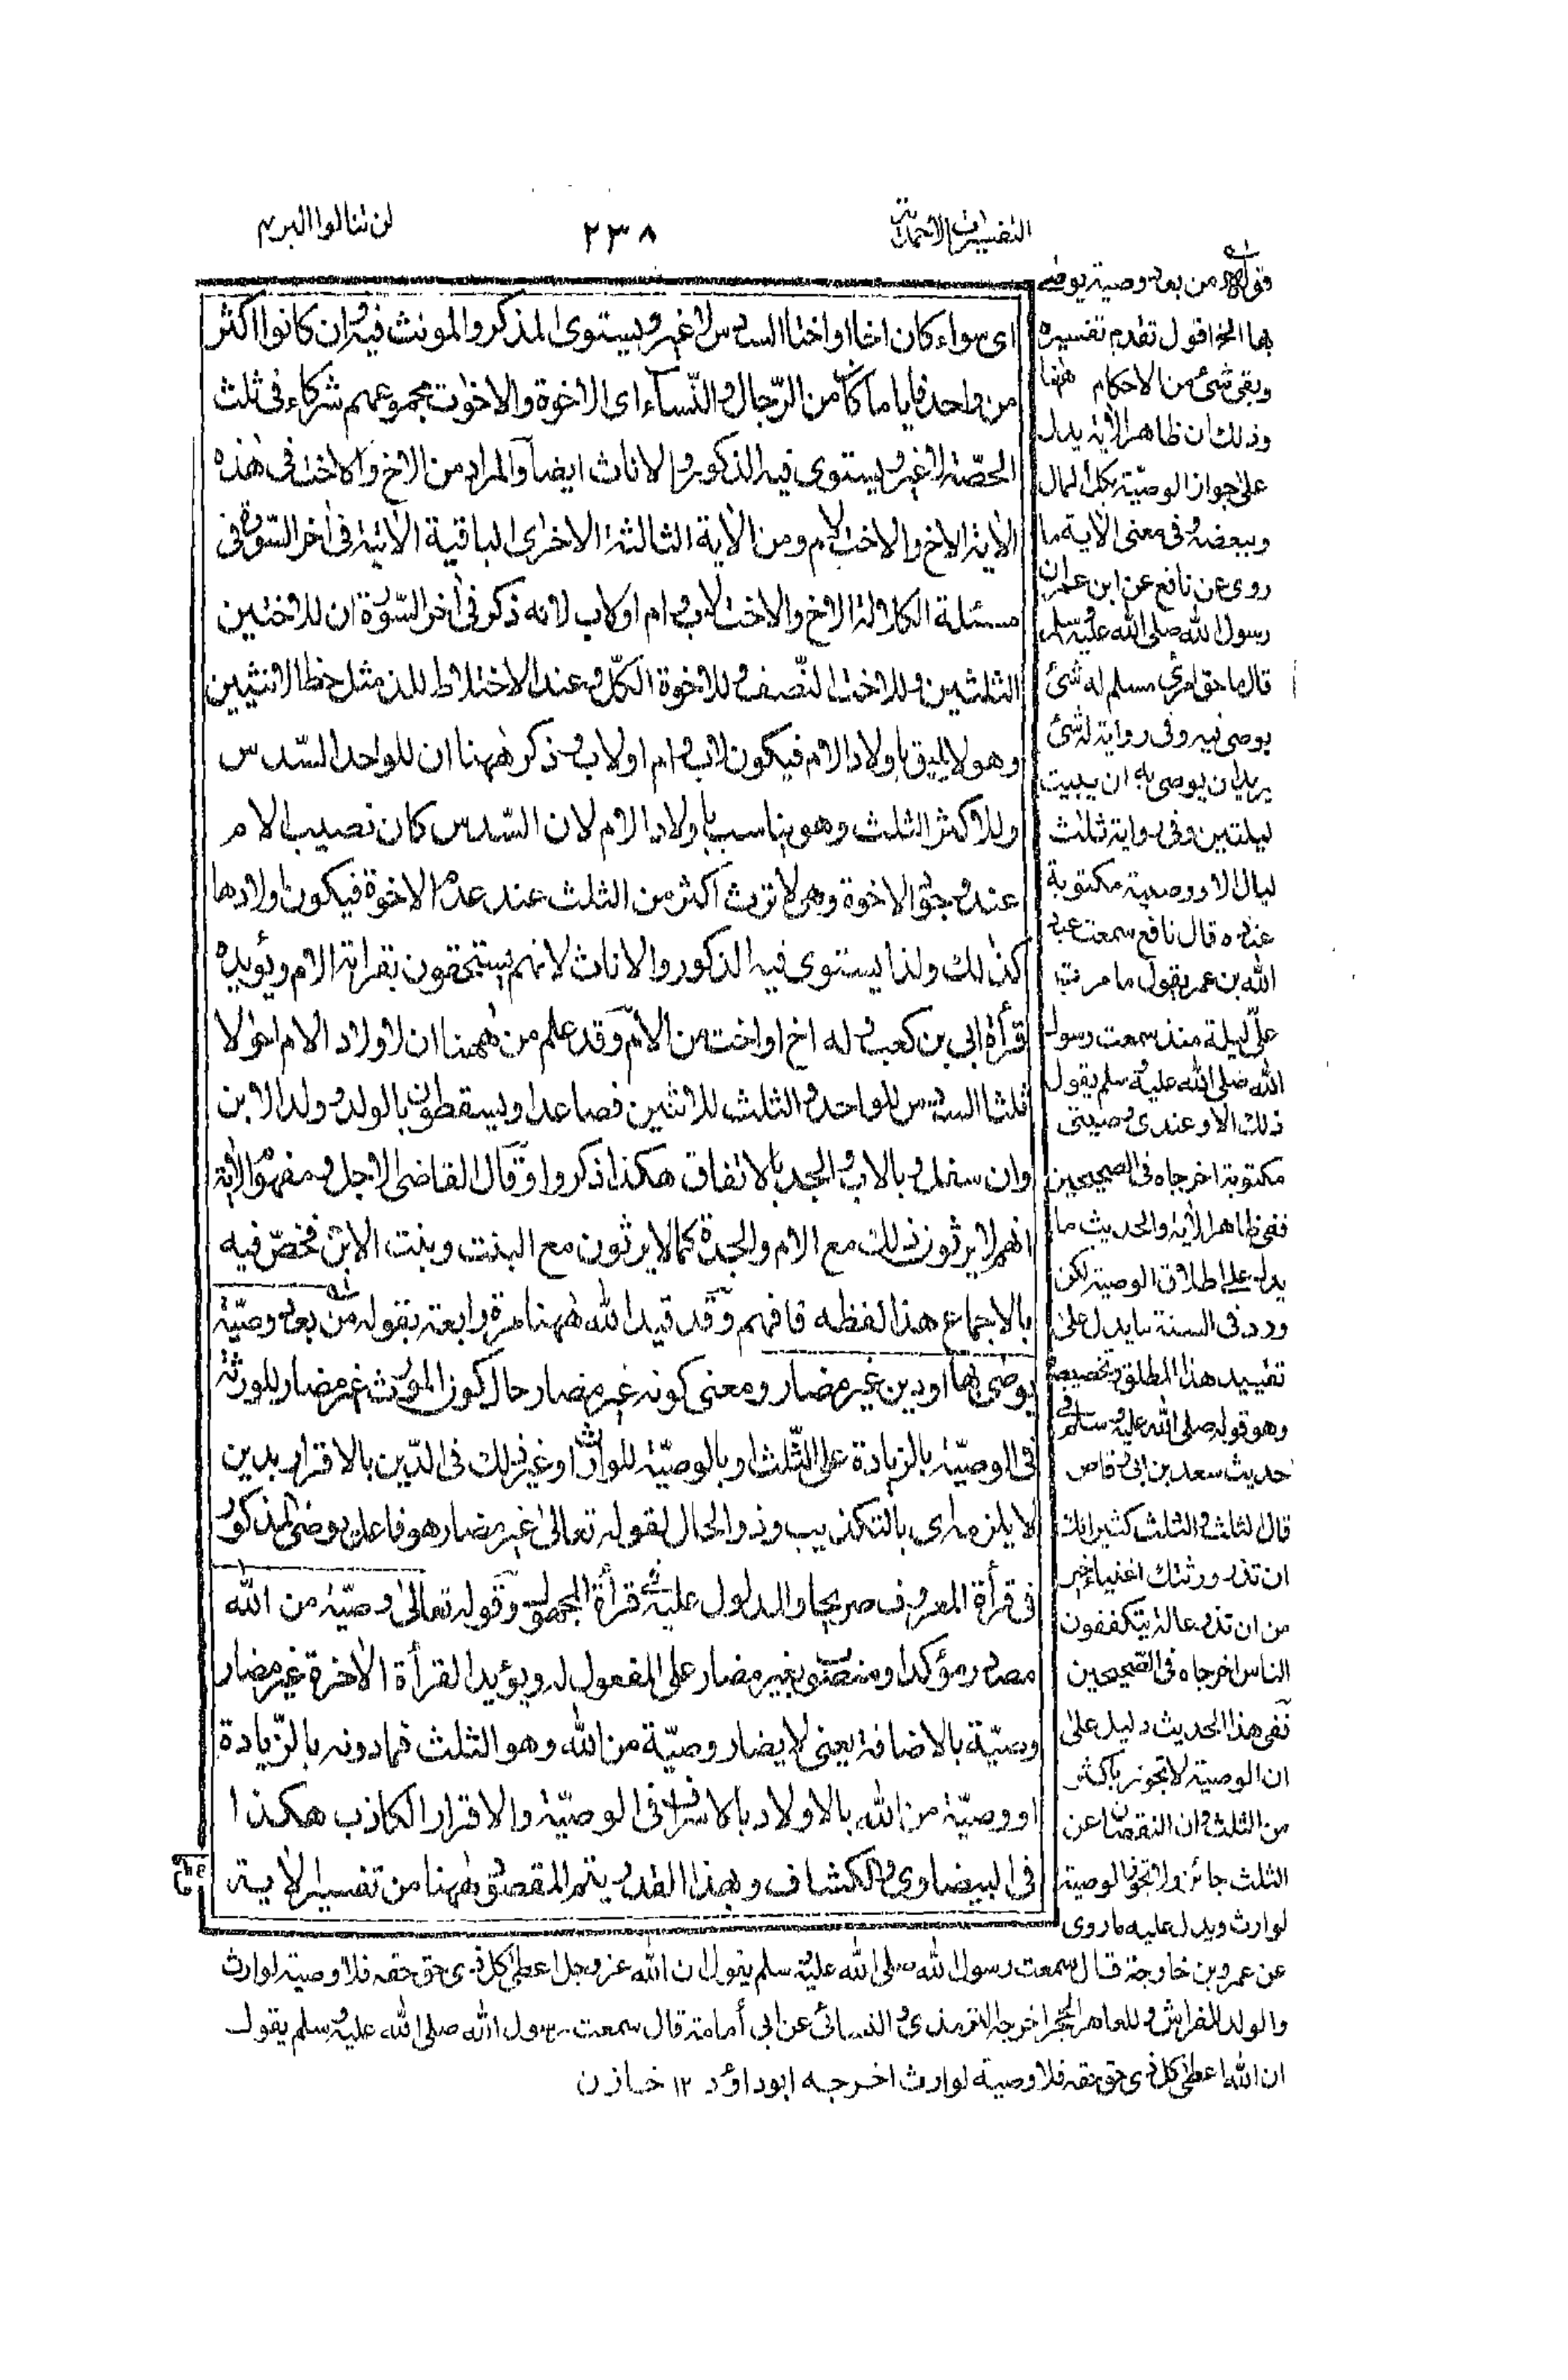 التفسيرات الاحمدية
٢٣٨
لن تنالوا البر ٤
اى سواء كان اخا او اختا السدس لا غير ويستوى المذكر والمونث فيه وان كانوا اكثر
من واحد فايا ما كان من الرّجال والنّساء اى الاخوة والاخوات مجموعهم شركاء فى ثلث
الحصّة لا غير ويستوى فيه الذكور والاناث ايضا والمراد من الاخ والاخت فى هٰذه
الأية الاخ والاخت لام ومن الأية الثالثة الاخرى الباقية الأتية فى أخر السّورة فى
مسئلة الكلالة الاخ والاخت لاب وام او لاب لانه ذكر فى أخر السّورة ان للاختين
الثلثين وللاخت النّصف وللاخوة الكلّ وعند الاختلاط للذكر مثل حظ الانثيين
وهو لا يليق باولاد الام فيكون لاب وام او لاب وذكر هٰهنا ان للواحد السّدس
وللاكثر الثلث وهو يناسب باولاد الام لان السّدس كان نصيب الام
عند وجود الاخوة وهى لا ترث اكثر من الثلث عند عدم الاخوة فيكون اولادها
كذٰلك ولذا يستوى فيه الذكور والاناث لانهم يستحقون بقرابة الام ويؤيده
قرأة ابى بن كعب وله اخ او اخت من الام وقد علم من هٰهنا ان لاولاد الام احوالا
ثلثا السدس للواحد والثلث للاثنين فصاعدا ويسقطون بالولد وولد الابن
وان سفل وبالاب والجد بالاتفاق هكذا ذكروا وقال القاضى الاجل ومفهوم الأية
انهم لا يرثون ذٰلك مع الام والجدة كما لا يرثون مع البنت وبنت الابن فخصّ فيه
بالاجماع هذا لفظه فافهم وقد قيد الله هٰهنا مرة رابعة بقوله من بعد وصيّة
يوصى بها او دين غير مضار ومعنى كونه غير مضار حال كون المورث غير مضار للورثة
فى الوصيّة بالزيادة على الثّلث او بالوصيّة للوارث او غير ذٰلك فى الدّين بالاقرار بدين
لا يلزمه اى بالتكذيب وذو الحال لقوله تعالىٰ غير مضار هو فاعل يوصى المذكور
فى قرأة المعروف صريحا والمدلول عليه فى قرأة المجهول وقوله تعالىٰ وصيّة من الله
مصدر مؤكد او منصوب بغير مضار على المفعول له ويؤيد القرأة الاخرة غير مضار
وصيّة بالاضافة يعنى لا يضار وصيّة من الله وهو الثلث فما دونه بالزّيادة
او وصيّة من الله بالاولاد بالاسراف فى الوصيّة والاقرار الكاذب هكذا
فى البيضاوى والكشاف وبهذا القدر يتم المقصود هٰهنا من تفسير الأية
قوله من بعد وصية يوصى
بها الخ اقول تقدم تفسيره
وبقى شئ من الاحكام هٰهنا
وذلك ان ظاهر الأية يدل
على جواز الوصيّة بكل المال
وببعضه وفى معنى الأية ما
روى عن نافع عن ابن عمر ان
رسول الله صلى الله عليه وسلم
قال ما حق امرئ مسلم له شئ
يوصى فيه وفى رواية له شئ
يريد ان يوصى به ان يبيت
ليلتين وفى رواية ثلٰث
ليال الا ووصية مكتوبة
عنده قال نافع سمعت عبد
الله بن عمر يقول ما مرت
علىّ ليلة منذ سمعت رسول
الله صلى الله عليه وسلم يقول
ذلك الا وعندى وصيتى
مكتوبة اخرجاه فى الصحيحين
ففى ظاهر الأية والحديث ما
يدل على اطلاق الوصية لكن
ورد فى السنة ما يدل على
تقييد هذا المطلق وتخصيصه
وهو قوله صلى الله عليه وسلم فى
حديث سعد بن ابى وقاص
قال الثلث والثلث كثير انك
ان تذر ورثتك اغنياء خير
من ان تذرهم عالة يتكففون
الناس اخرجاه فى الصّحيحين
ففى هذا الحديث دليل على
ان الوصية لا تجوز باكثر
من الثلث وان النقصان عن
الثلث جائز ولا تجوز الوصية
لوارث ويدل عليه ما روى
عن عمرو بن خارجة قال سمعت رسول الله صلى الله عليه وسلم يقول ان الله عز وجل اعطى كل ذى حق حقه فلا وصية لوارث
والولد للفراش وللعاهر الحجر اخرجه الترمذى والنسائى عن ابى أمامة قال سمعت رسول الله صلى الله عليه وسلم يقول
ان الله اعطى كل ذى حق حقه فلا وصية لوارث اخرجه ابوداؤد ١٢ خازن